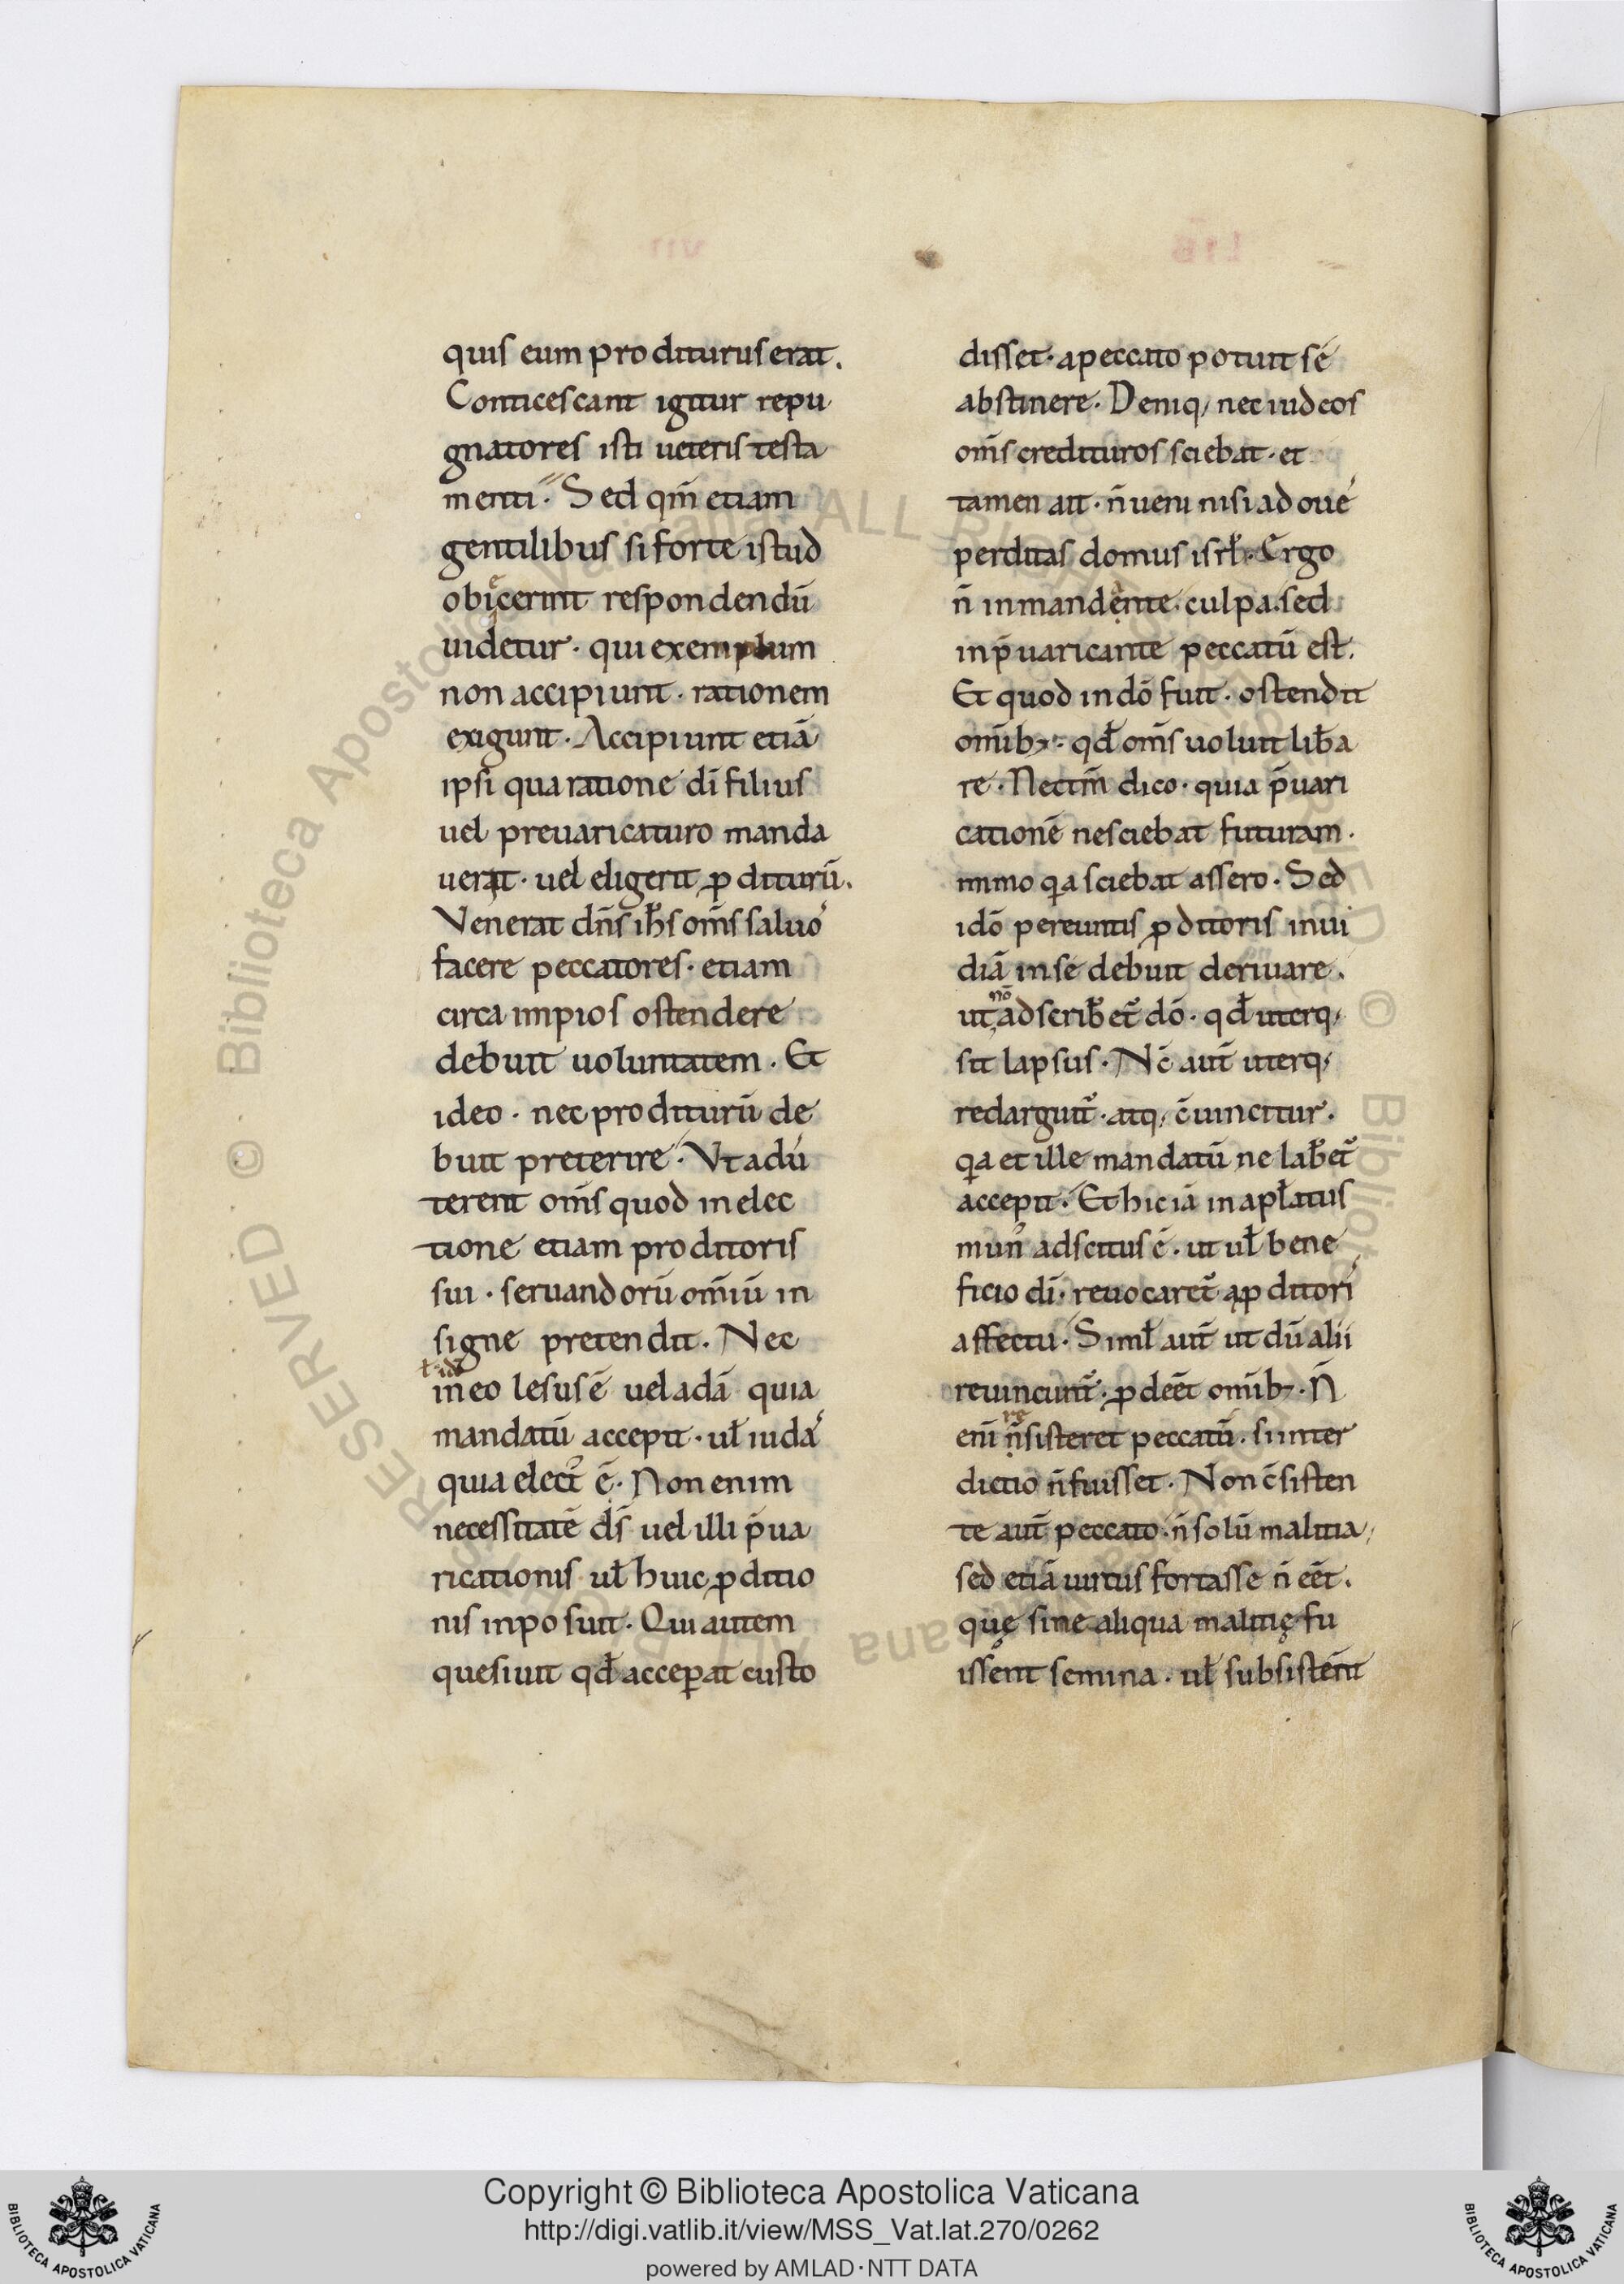 quis eum proditurus erat.
Conticescant igitur repu
gnatores isti ueteris testa
menti. Sed qm̄ etiam
gentilibus si forte istud
obicerint respondendū
uidetur · qui exemplum
non accipiunt · rationem
exigunt. Accipiunt etiā
ipsi qua ratione dī filius
uel preuaricaturo manda
uerit · uel eligerit ꝓditurū.
Venerat dn̄s ih̄s om̄s saluo
facere peccatores · etiam
circa impios ostendere
debuit uoluntatem. Et
ideo · nec proditurū de
buit preterire. Vt aduer
terent om̄s quod in elec
tione etiam proditoris
sui · seruandorū om̄iū in
signe pretendit. Nec
in eo lesus ē uel adā quia
mandatū accepit · ul̄ iuda
quia elect᾽ ē. Non enim
necessitatē d̄s uel illi p̄ua
ricationis ul̄ huic ꝓditio
nis inposuit. Qui autem
quesiuit qd̄ acceꝑat custo
disset · a peccato potuit se
abstinere. Deniq; nec iudeos
om̄s credituros sciebat · et
tamen ait · n̄ ueni nisi ad oue
perditas domus isrl̄. Ergo
n̄ in mandante culpa · sed
in p̄uaricante peccatū est.
Et quod in dō fuit · ostendit
om̄ib; · qd̄ om̄s uoluit lib̄a
re. Nec tm̄ dico · quia p̄uari
cationē nesciebat futuram.
immo qa sciebat assero. Sed
idō pereuntis ꝓditoris inui
diā in se debuit deriuare.
nō
ut adscrib̄et̄ dō · qd̄ uterq;
sit lapsus. Nc̄ aut̄ uterq;
redarguit̄ · atq; c̄uincitur.
qa et ille mandatū ne lab̄et̄
accepit. Et hic iā in apl̄atus
mun᾽ adscitus ē · ut ul̄ bene
ficio dī · reuocaret̄ a ꝓditori
affectu. Simil̄ aut̄ ut dū alii
reuincunt̄ · ꝓdeēt om̄ib;. N̄
enī n̄sisteret peccatū · si inter
dictio n̄ fuisset. Non c̄sisten
te aut̄ peccato · n̄ solū malitia,
sed etiā uirtus fortasse n̄ eēt.
quę sine aliqua malitię fu
issent semina · ul̄ subsistēnt
Copyright © Biblioteca Apostolica Vaticana
http://digi.vatlib.it/view/MSS_Vat.lat.270/0262
powered by AMLAD·NTT DATA
BIBLIOTECA APOSTOLICA VATICANA
BIBLIOTECA APOSTOLICA VATICANA